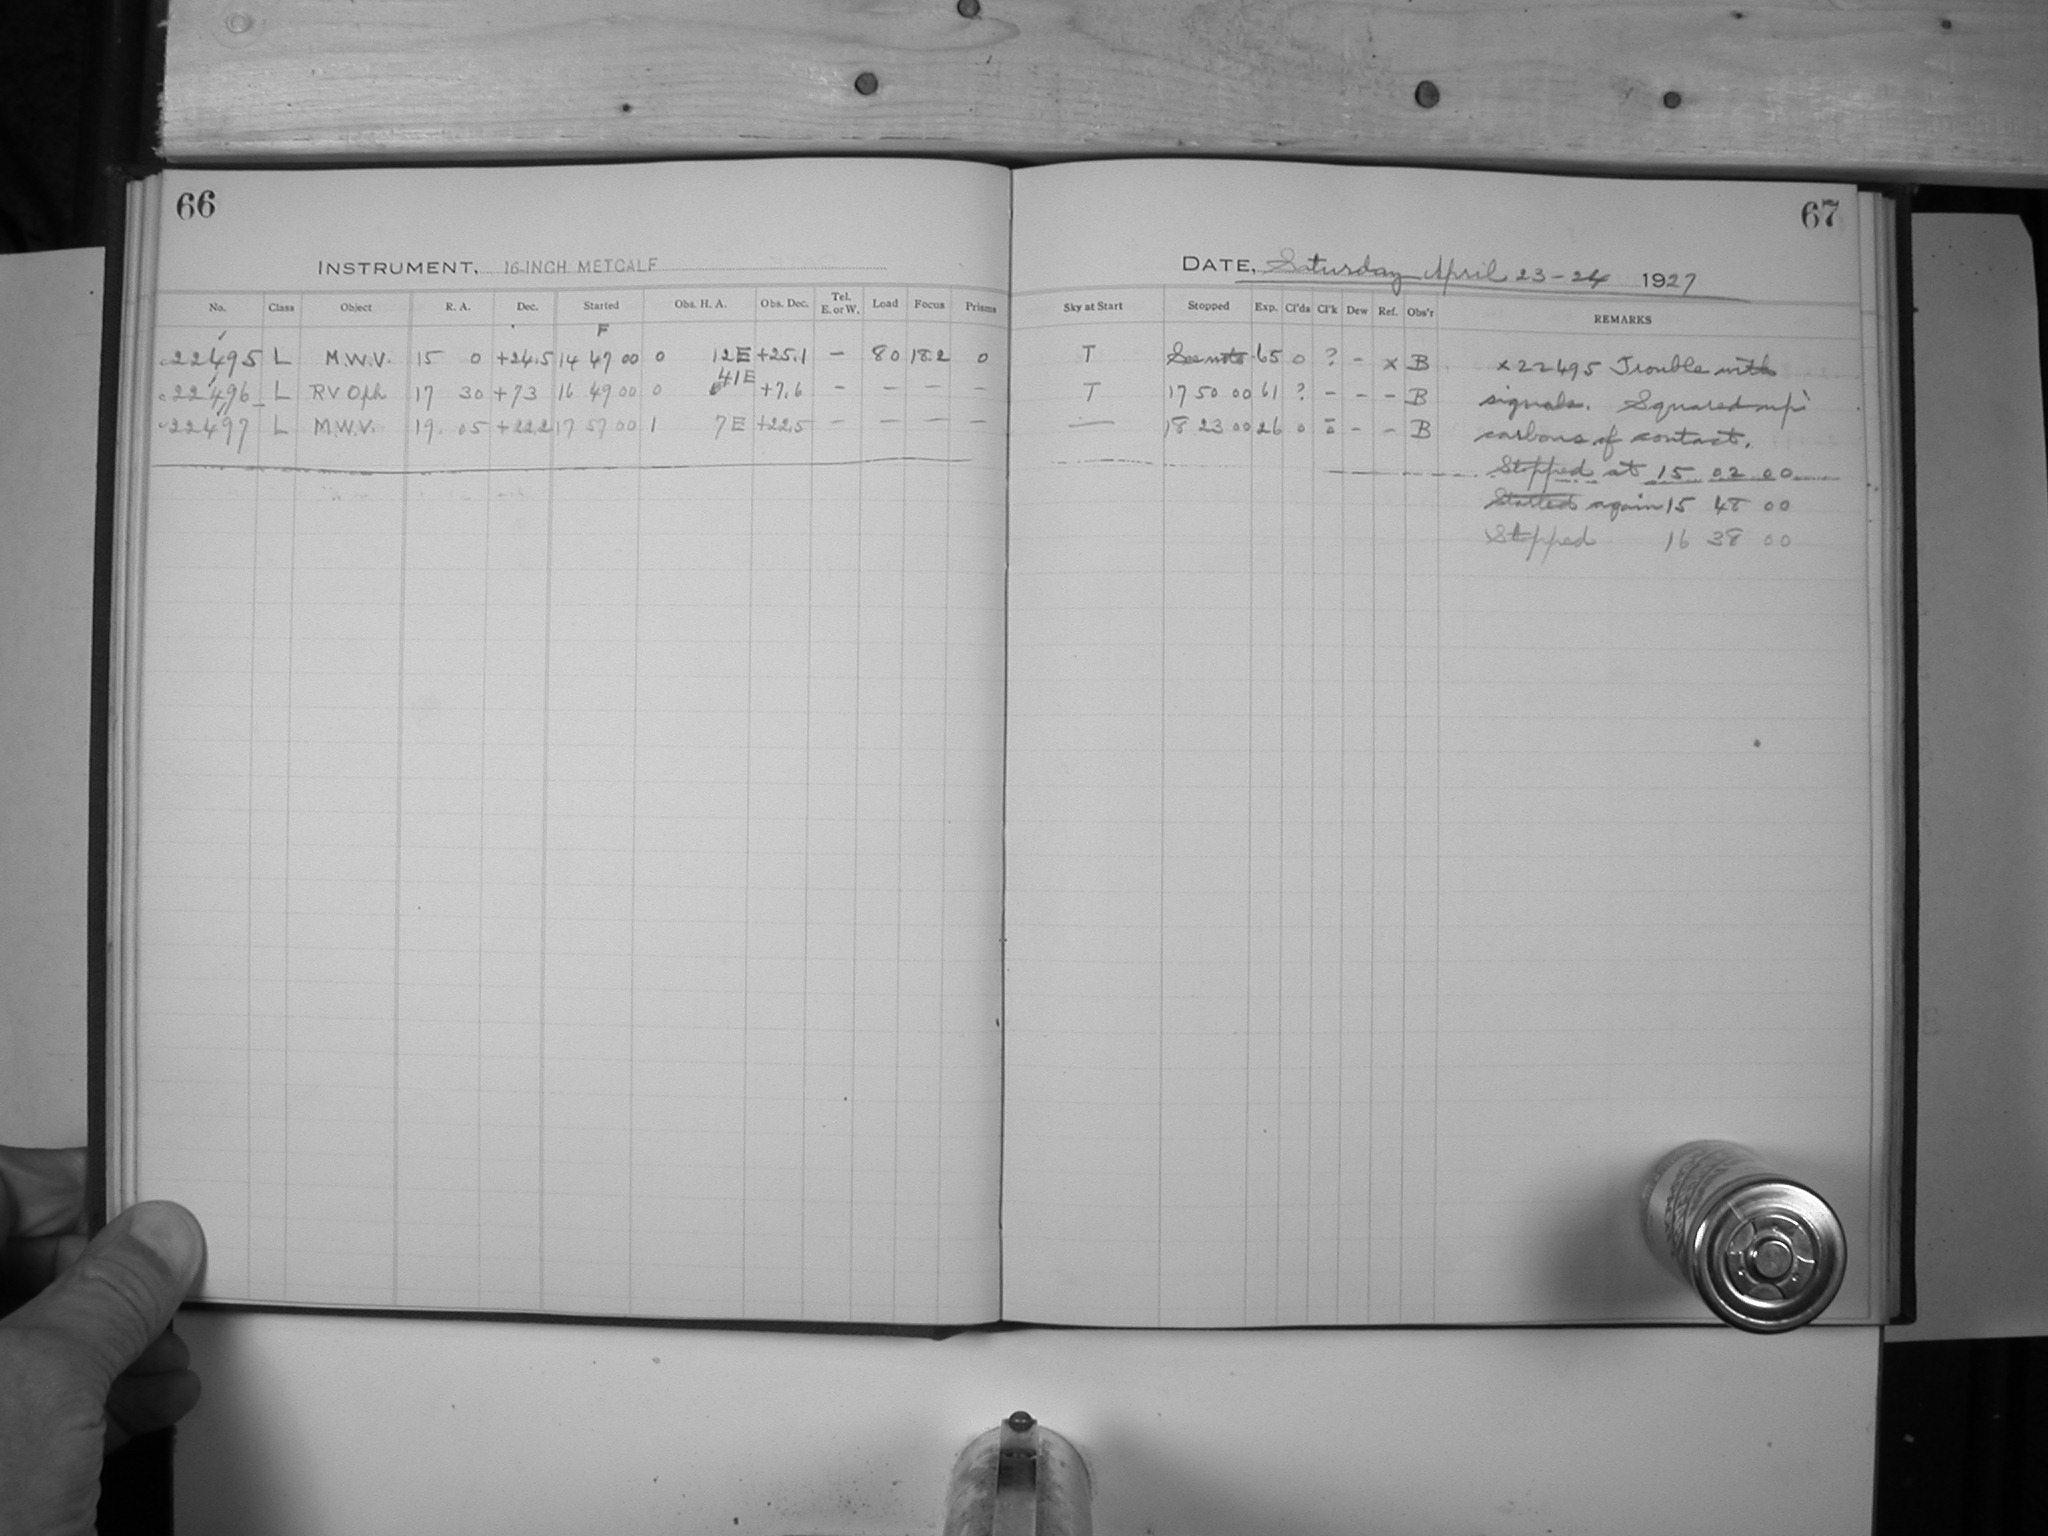 66
INSTRUMENT, 16-INCH METCALF
No. Class Object R. A. Dec. Started Obs. H. A. Obs. Dec. Tel. E. or W. Load Focus Prisms
F
c22495 L M.W.V. 15 0 +24.5 14 47 00 0 12E +25.1 – 80 18.2 0
c22496 L RV Oph 17 30 +7.3 16 49 00 0 41E +7.6 – – – –
c22497 L M.W.V. 19 05 +22.2 17 57 00 1 7E +22.5 – – – –
67
DATE, Saturday April 23-24 1927
Sky at Start Stopped Exp. Cl'ds Cl'k Dew Ref. Obs'r REMARKS
T See note 65 0 ? – x B x22495 Trouble with
T 17 50 00 61 ? – – – B signals. Squared up
— 18 23 00 26 0 – – B carbons of contact.
Stopped at 15 02 00
Started again 15 48 00
Stopped 16 38 00